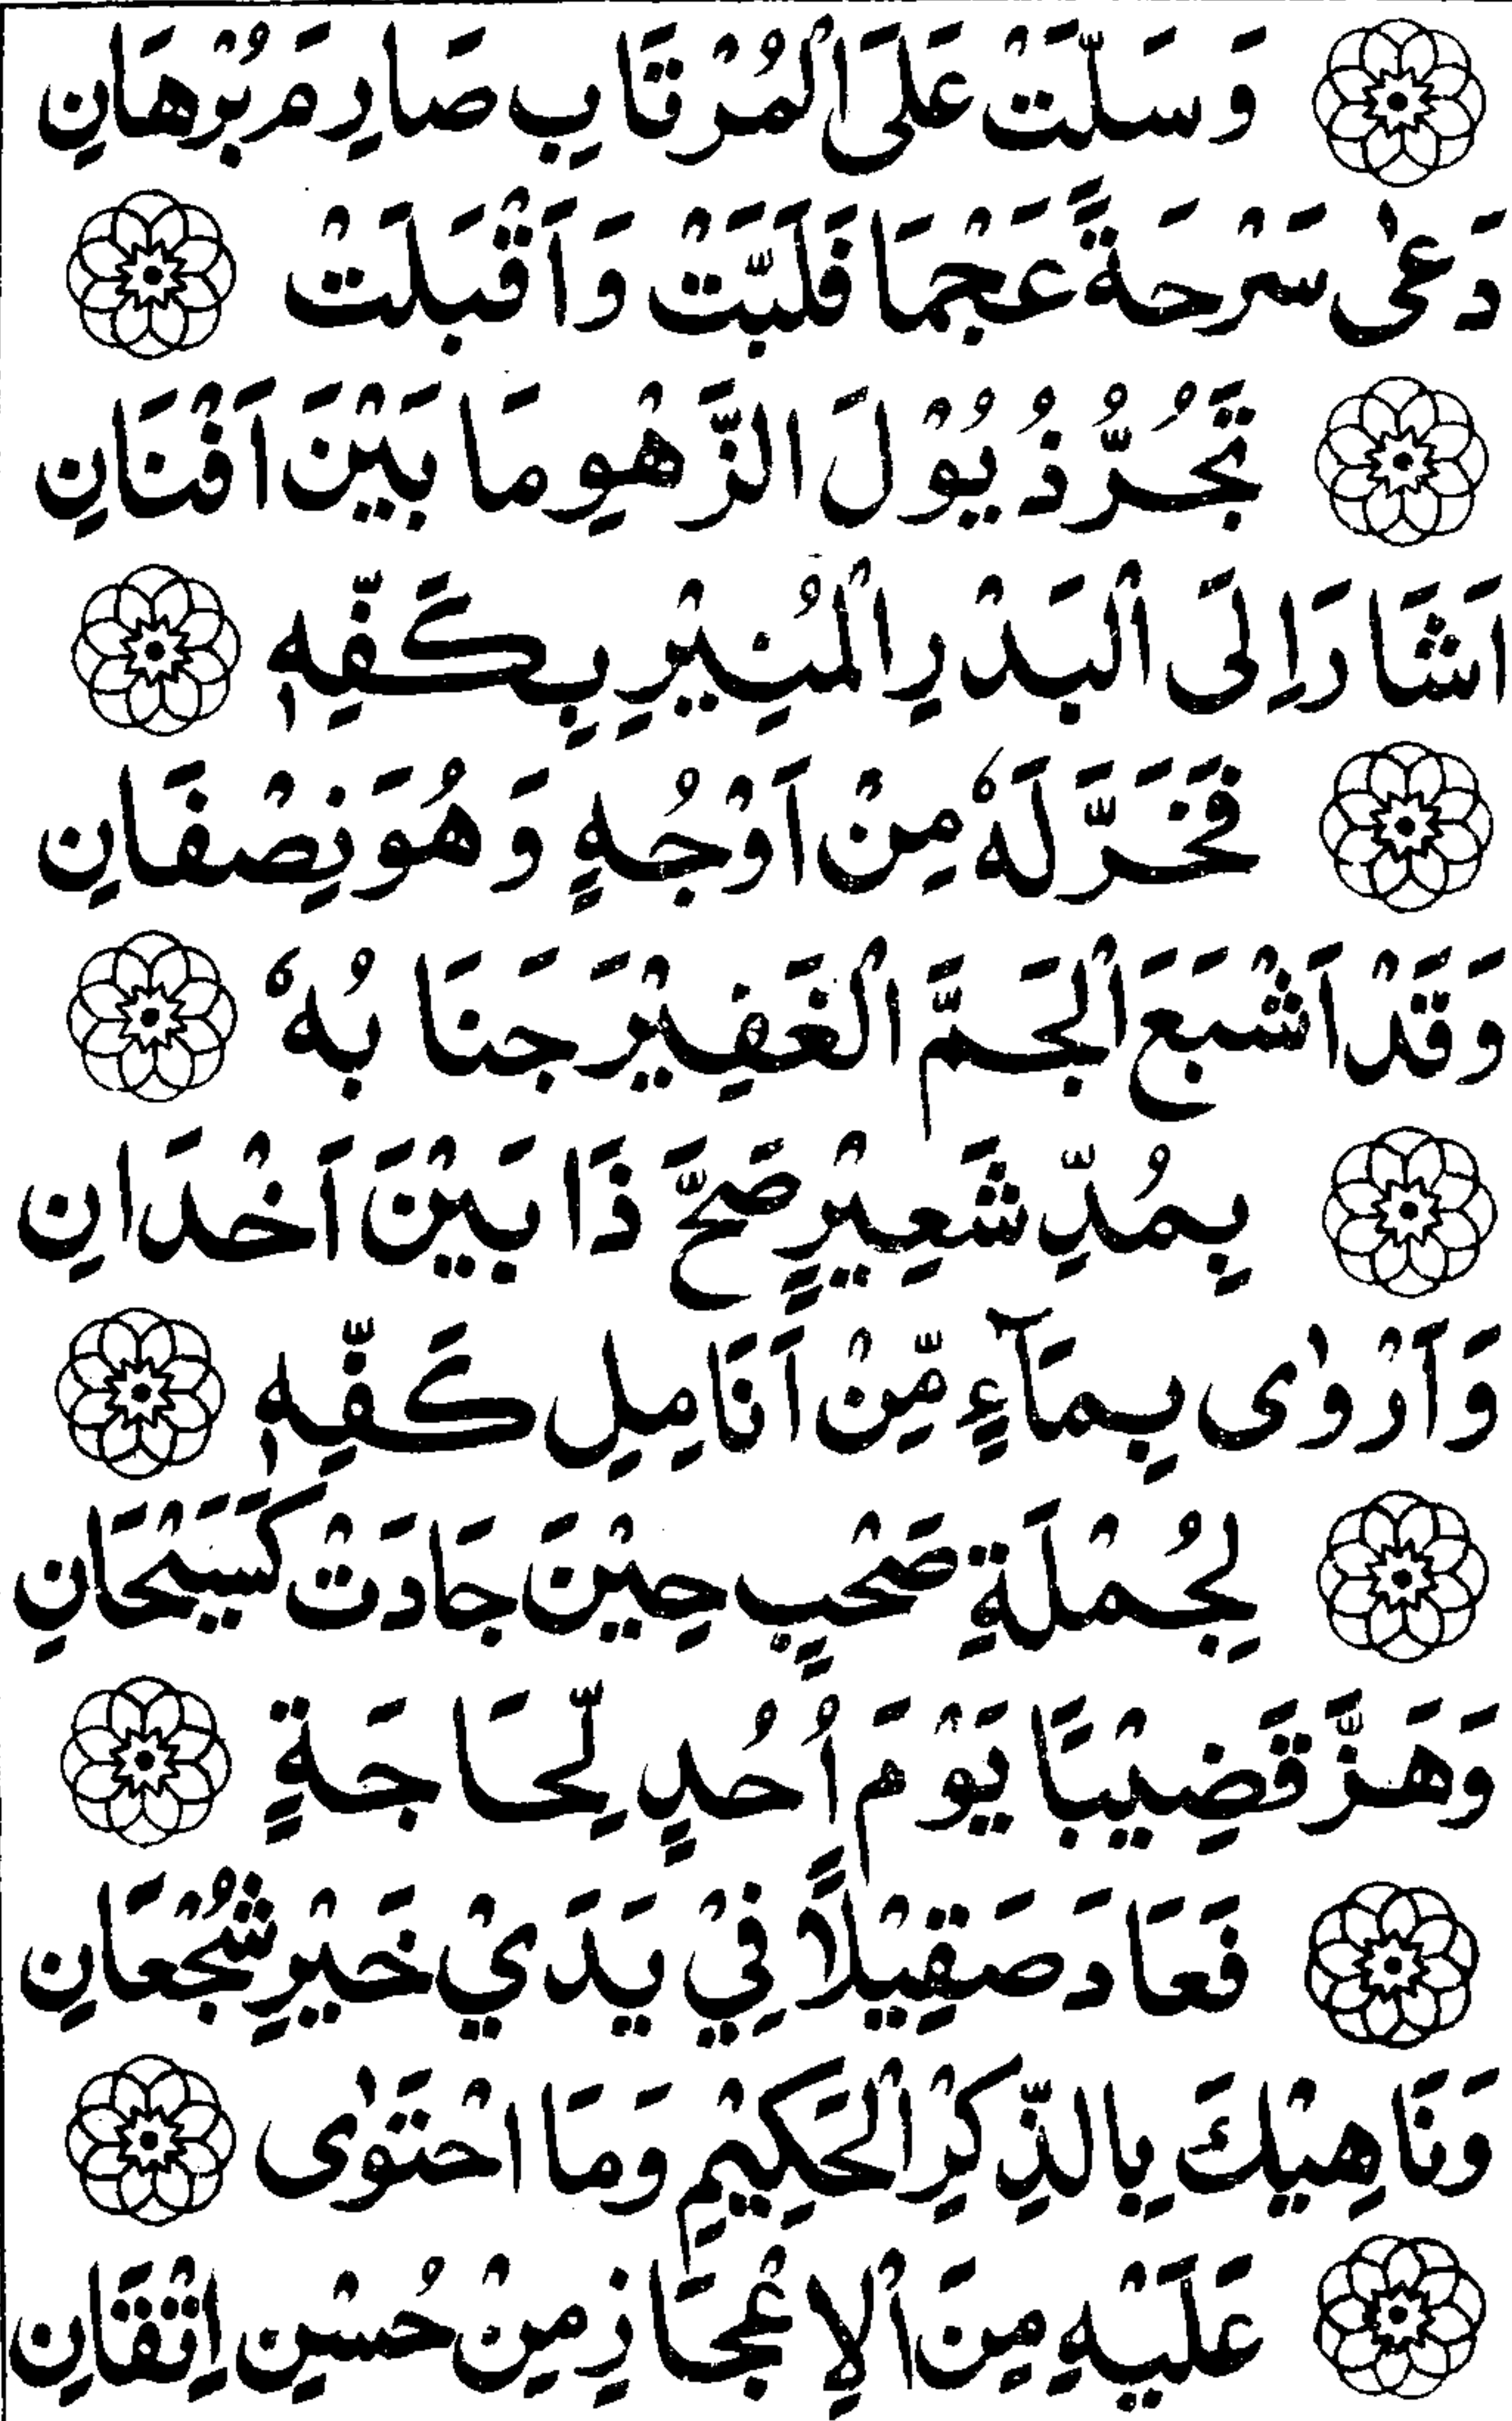 وَسَلَّتْ عَلَى الْمُرْتَابِ صَارِمَ بُرْهَانِ
دَعٰى سَرْحَةً عَجْمَا فَلَبَّتْ وَاَقْبَلَتْ
تَجُرُّ ذُيُوْلَ الزَّهْوِ مَا بَيْنَ اَفْنَانِ
اَشَارَ اِلَى الْبَدْرِ الْمُنِيْرِ بِكَفِّهٖ
فَخَرَّ لَهٗ مِنْ اَوْجُهٍ وَهُوَ نِصْفَانِ
وَقَدْ اَشْبَعَ الْجَمَّ الْغَفِيْرَ جَنَابُهٗ
بِمُدِّ شَعِيْرٍ صَحَّ ذَا بَيْنَ اَخْدَانِ
وَاَرْوٰى بِمَآءٍ مِّنْ اَنَامِلِ كَفِّهٖ
لِجُمْلَةِ صَحْبٍ حِيْنَ جَادَتْ كَسَيْحَانِ
وَهَزَّ قَضِيْبًا يَوْمَ اُحُدٍ لِّحَاجَةٍ
فَعَادَ صَقِيْلًا فِيْ يَدَيْ خَيْرِ شُجْعَانِ
وَنَاهِيْكَ بِالذِّكْرِ الْحَكِيْمِ وَمَا احْتَوٰى
عَلَيْهِ مِنَ الْاِعْجَازِ مِنْ حُسْنِ اِتْقَانِ